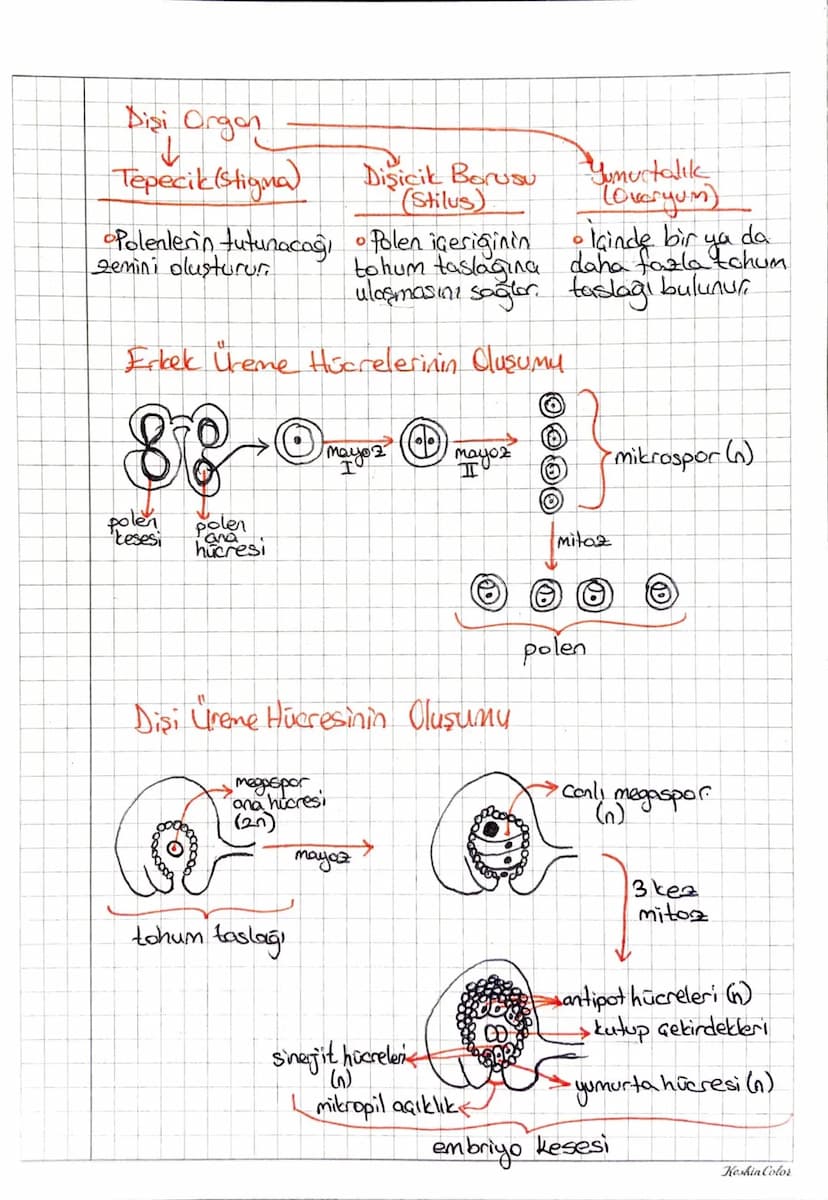 Dişi Organ
Tepecik(Stigma)
• Polenlerin tutunacağı
zemini oluşturur.
Dişicik Borusu
(Stilus)
• Polen içeriğinin
tohum taslağına
ulaşmasını sağlar.
Yumurtalık
(Ovaryum)
• İçinde bir ya da
daha fazla tohum
taslağı bulunur.
Erkek Üreme Hücrelerinin Oluşumu
mayoz
I
mayoz
II
mikrospor (n)
polen
kesesi
polen
ana
hücresi
mitoz
polen
Dişi Üreme Hücresinin Oluşumu
megaspor
ana hücresi
(2n)
mayoz
tohum taslağı
canlı megaspor
(n)
3 kez
mitoz
antipot hücreleri (n)
kutup çekirdekleri
sinerjit hücreleri
(n)
yumurta hücresi (n)
mikropil açıklık
embriyo kesesi
KeskinColor